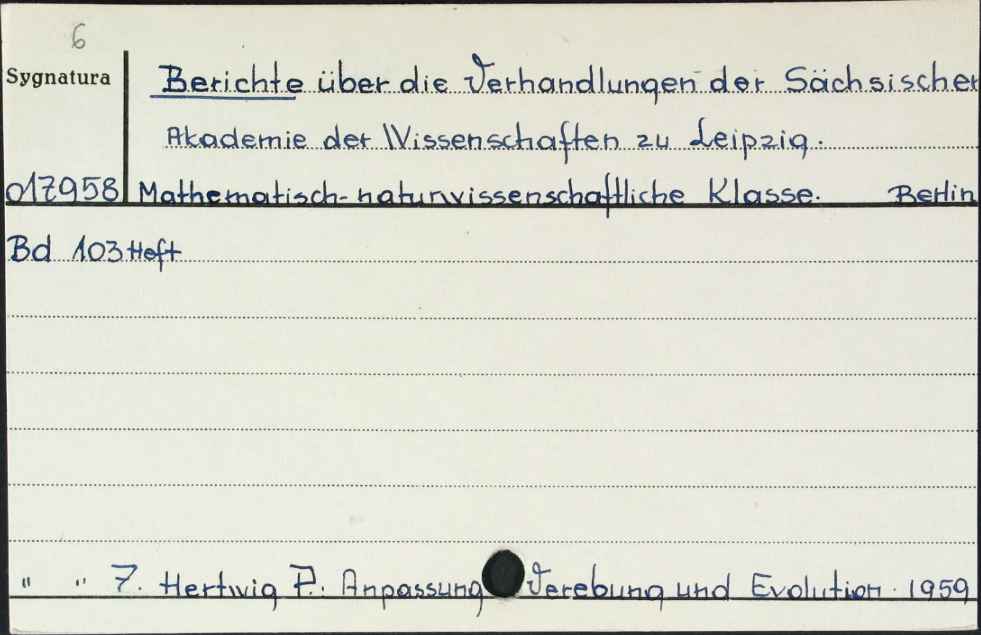 6
Sygnatura Berichte über die Verhandlungen der Sächsischer
Akademie der Wissenschaften zu Leipzig.
017958 Mathematisch-naturwissenschaftliche Klasse. Berlin
Bd 103 Heft
" " 7. Hertwig P.: Anpassung Verebung und Evolution. 1959